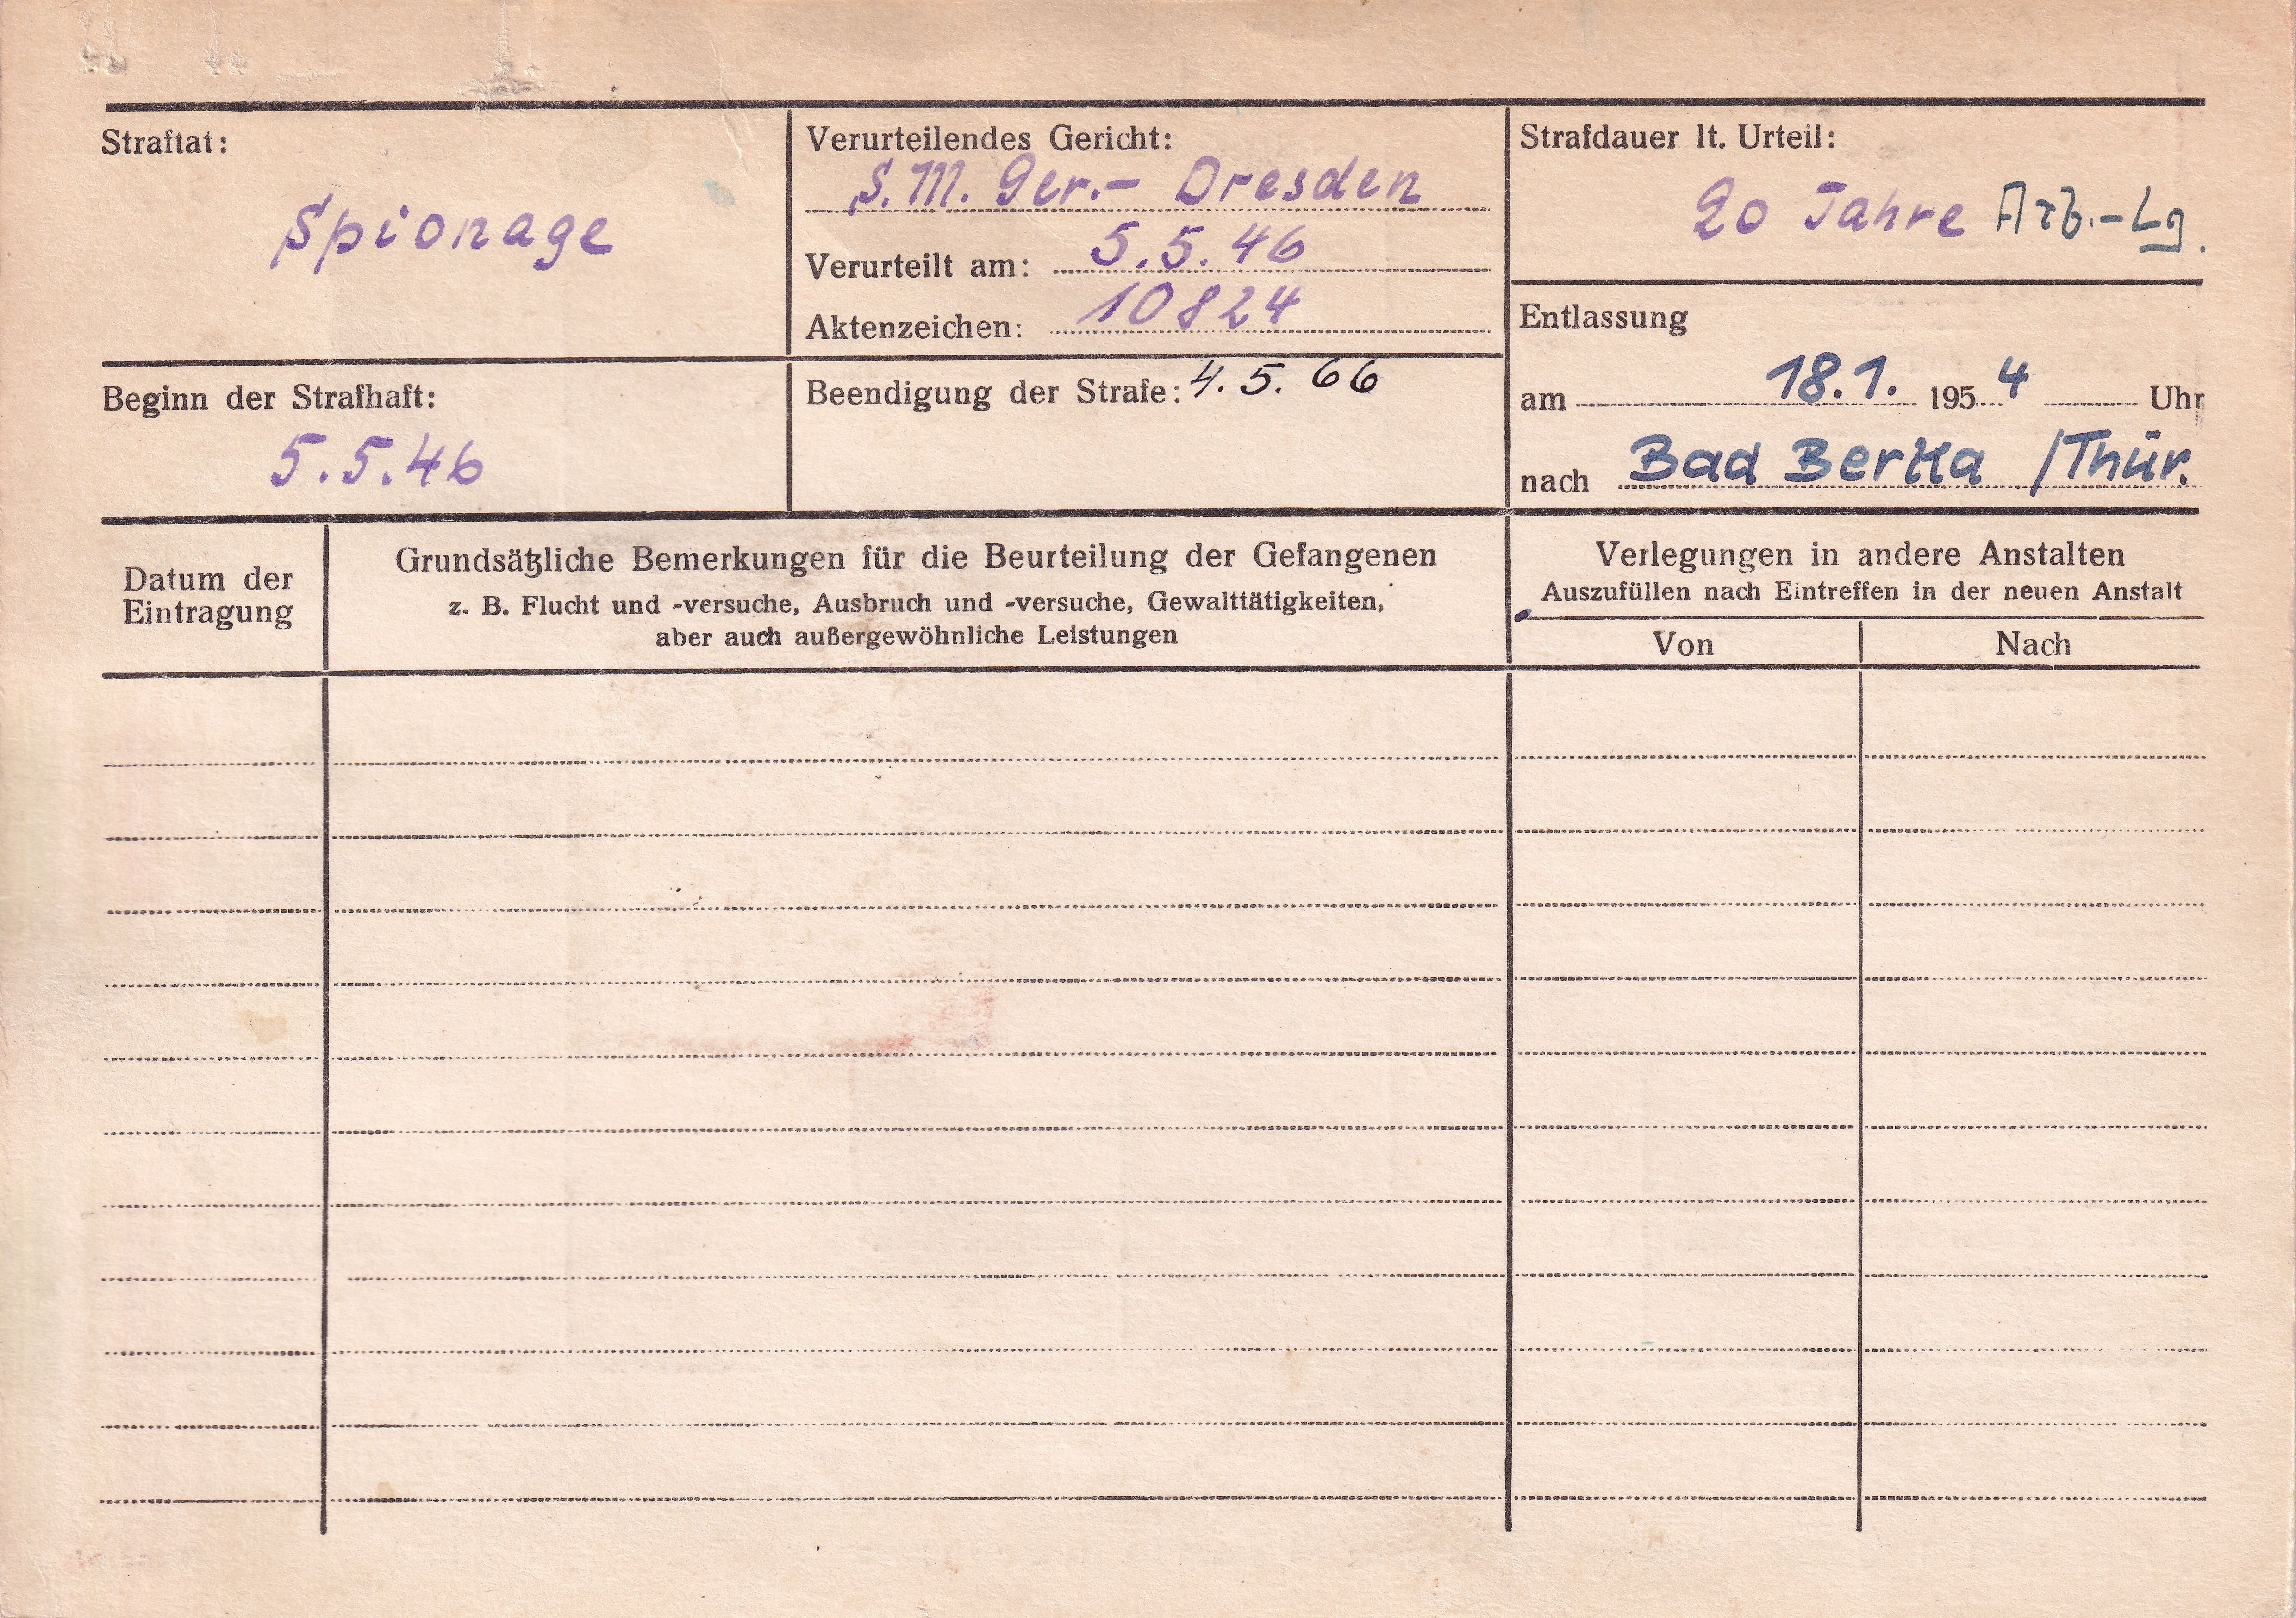 Straftat:
Spionage
Verurteilendes Gericht:
S.M. Ger.- Dresden
Verurteilt am: 5.5.46
Aktenzeichen: 10824
Strafdauer lt. Urteil:
20 Jahre Arb.-Lg.
Beginn der Strafhaft:
5.5.46
Beendigung der Strafe: 4.5.66
Entlassung
am 18.1. 1954 Uhr
nach Bad Berka /Thür.
Datum der
Eintragung
Grundsätzliche Bemerkungen für die Beurteilung der Gefangenen
z. B. Flucht und -versuche, Ausbruch und -versuche, Gewalttätigkeiten,
aber auch außergewöhnliche Leistungen
Verlegungen in andere Anstalten
Auszufüllen nach Eintreffen in der neuen Anstalt
Von Nach